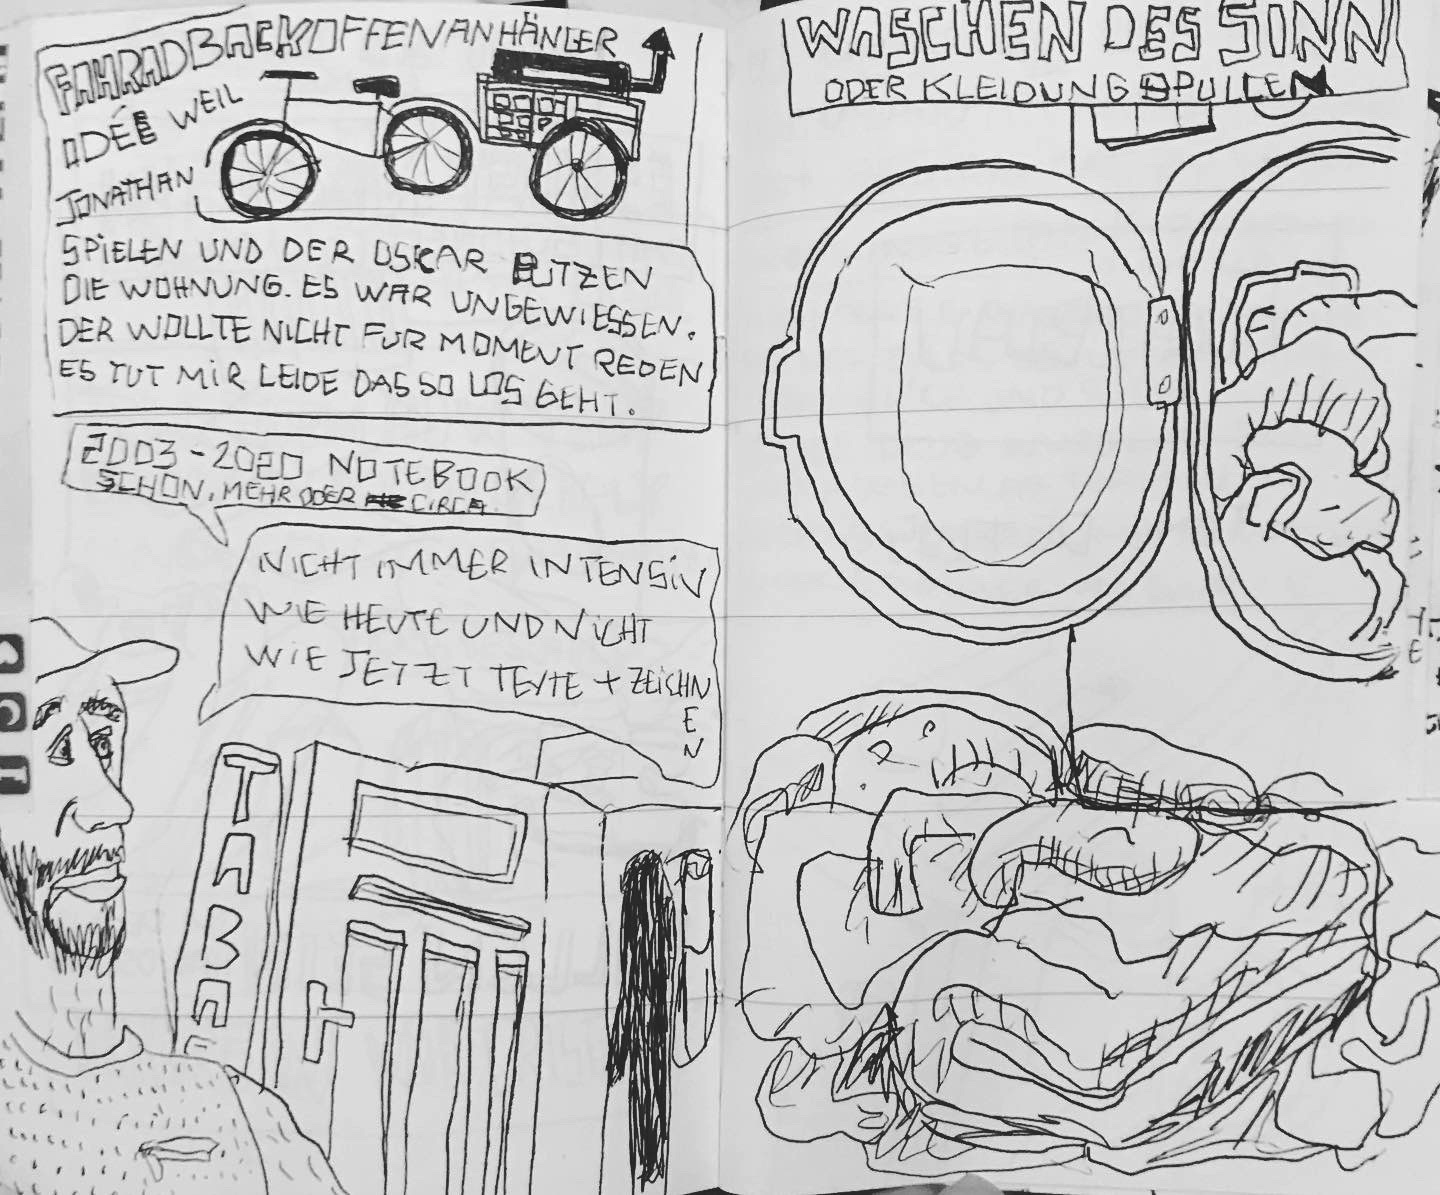 FAHRADBACKOFFENANHÄNGER
IDÉE WEIL
JONATHAN
SPIELEN UND DER OSKAR PUTZEN
DIE WOHNUNG. ES WAR UNGEWIESSEN.
DER WOLLTE NICHT FUR MOMENT REDEN
ES TUT MIR LEIDE DAS SO LOS GEHT.
2003-2020 NOTEBOOK
SCHON, MEHR ODER CIRCA
NICHT IMMER INTENSIV
WIE HEUTE UND NICHT
WIE JETZT TEXTE + ZEICHNEN
TABAC
WASCHEN DES SINN
ODER KLEIDUNG SPULLEN